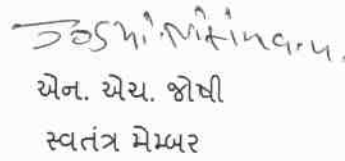 Joshi. Nitin. H.
એન. એચ. જોષી
સ્વતંત્ર મેમ્બર